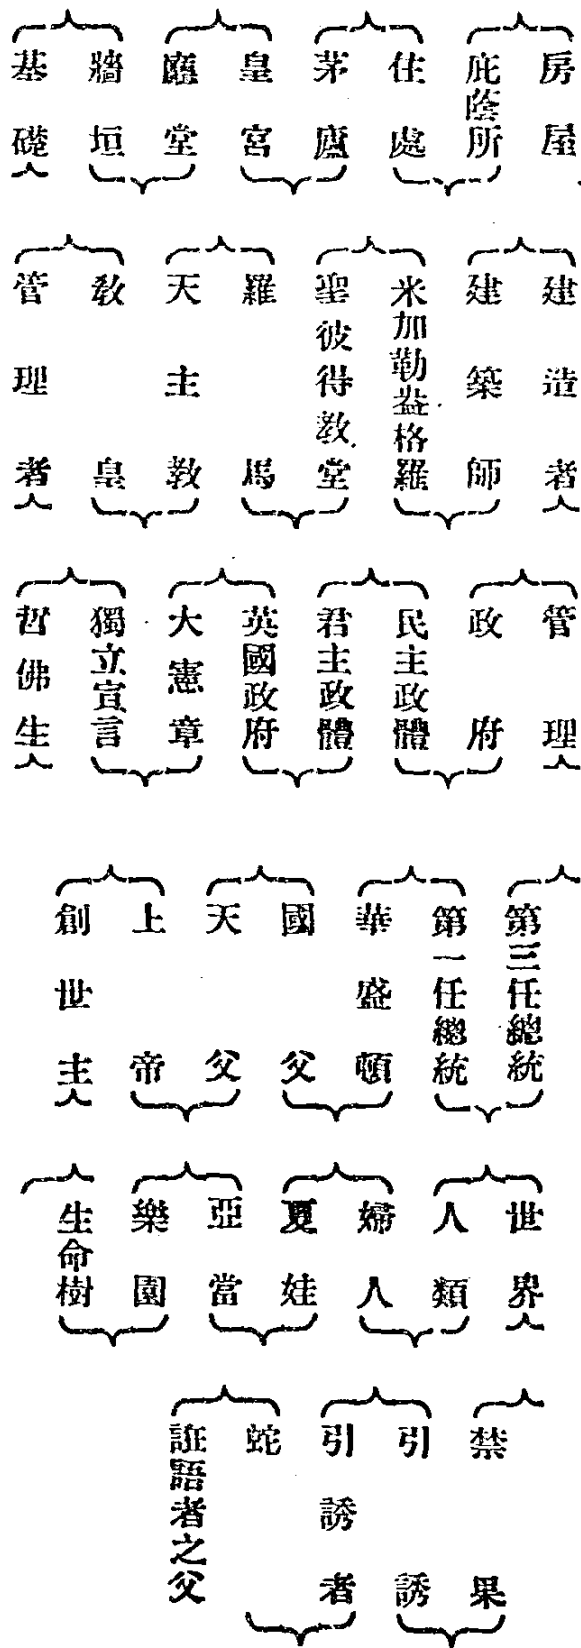 房屋
庇蔭所
住處
茅廬
皇宮
廳堂
牆垣
基礎
建造者
建築師
米加勒盎格羅
聖彼得教堂
羅馬
天主教
教皇
管理者
管理
政府
民主政體
君主政體
英國政府
大憲章
獨立宣言
哲佛生
第三任總統
第一任總統
華盛頓
國父
天父
上帝
創世主
世界
人類
婦人
夏娃
亞當
樂園
生命樹
禁果
引誘
引誘者
蛇
誑語者之父